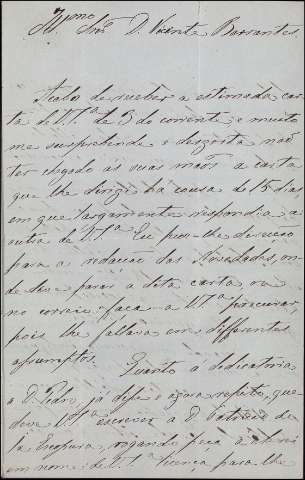 Il.mo Snr. D. Vicente Barrantes.
Acabo de receber a estimada car-
ta de V.ª de 3 do corrente, e muito
me surprehende e desgosta não
ter chegado ás suas mãos a carta
que lhe dirigi ha cousa de 15 dias,
em que largamente respondia á
outra de V.ª Eu puz-lhe direcção
para a redacção das Novedades, on-
de deve parar a dita carta, ou
no correio: faça-a V.ª procurar,
pois lhe fallava em differentes
assumptos.
Quanto á dedicatoria
a D. Pedro já disse e agora repito, que
deve V.ª escrever a D. Patricio de
la Escosura, rogando peça a
em nome de V.ª licença para lhe